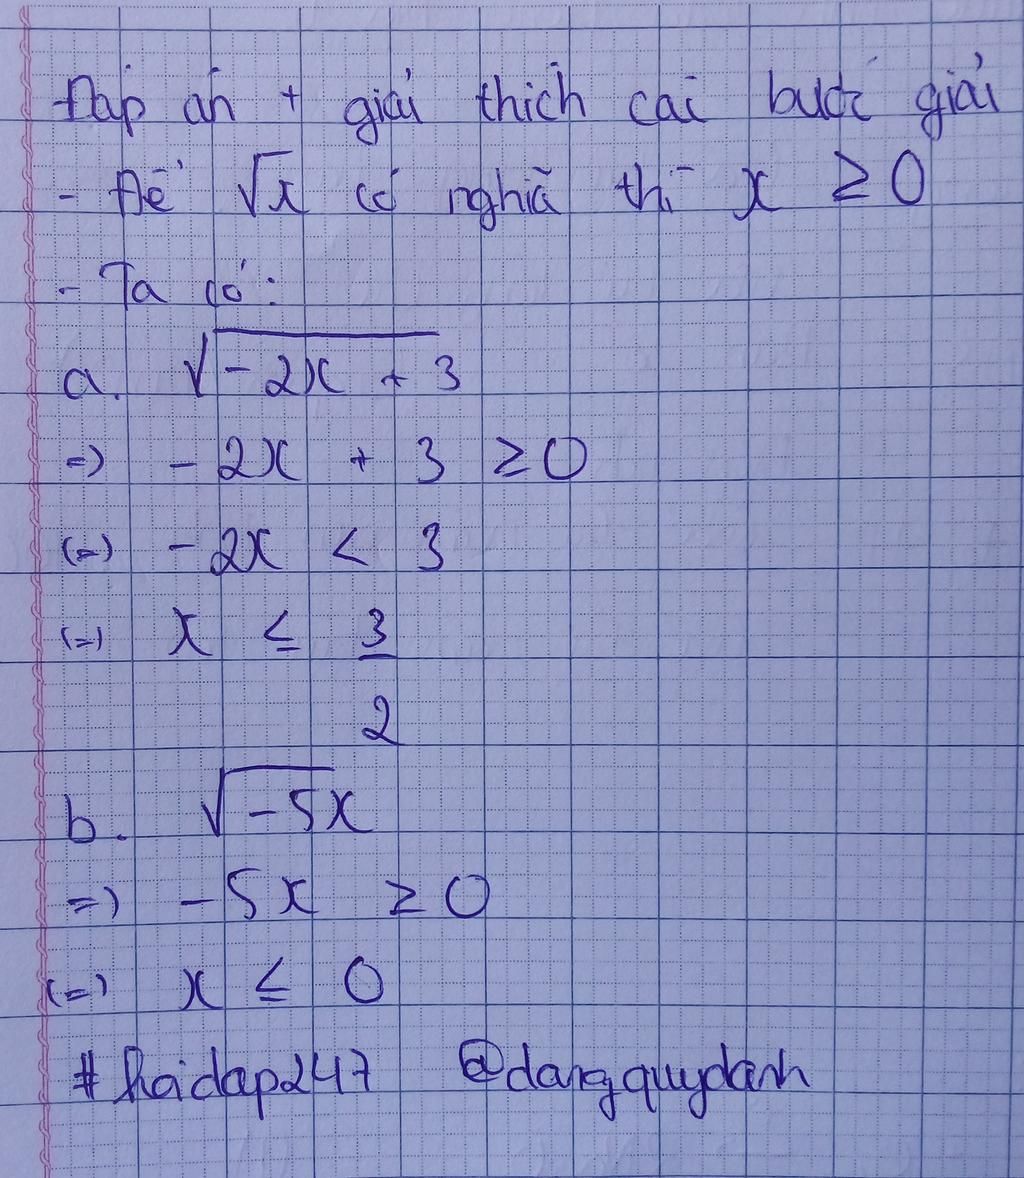 Đáp án + giải thích các bước giải
- Để √x có nghĩa thì x ≥ 0
- Ta có:
a. √-2x + 3
=> -2x + 3 ≥ 0
(=) -2x < 3
(=) x ≤ 3/2
b. √-5x
=) -5x ≥ 0
(=) x ≤ 0
#hoidap247 @dangquydanh